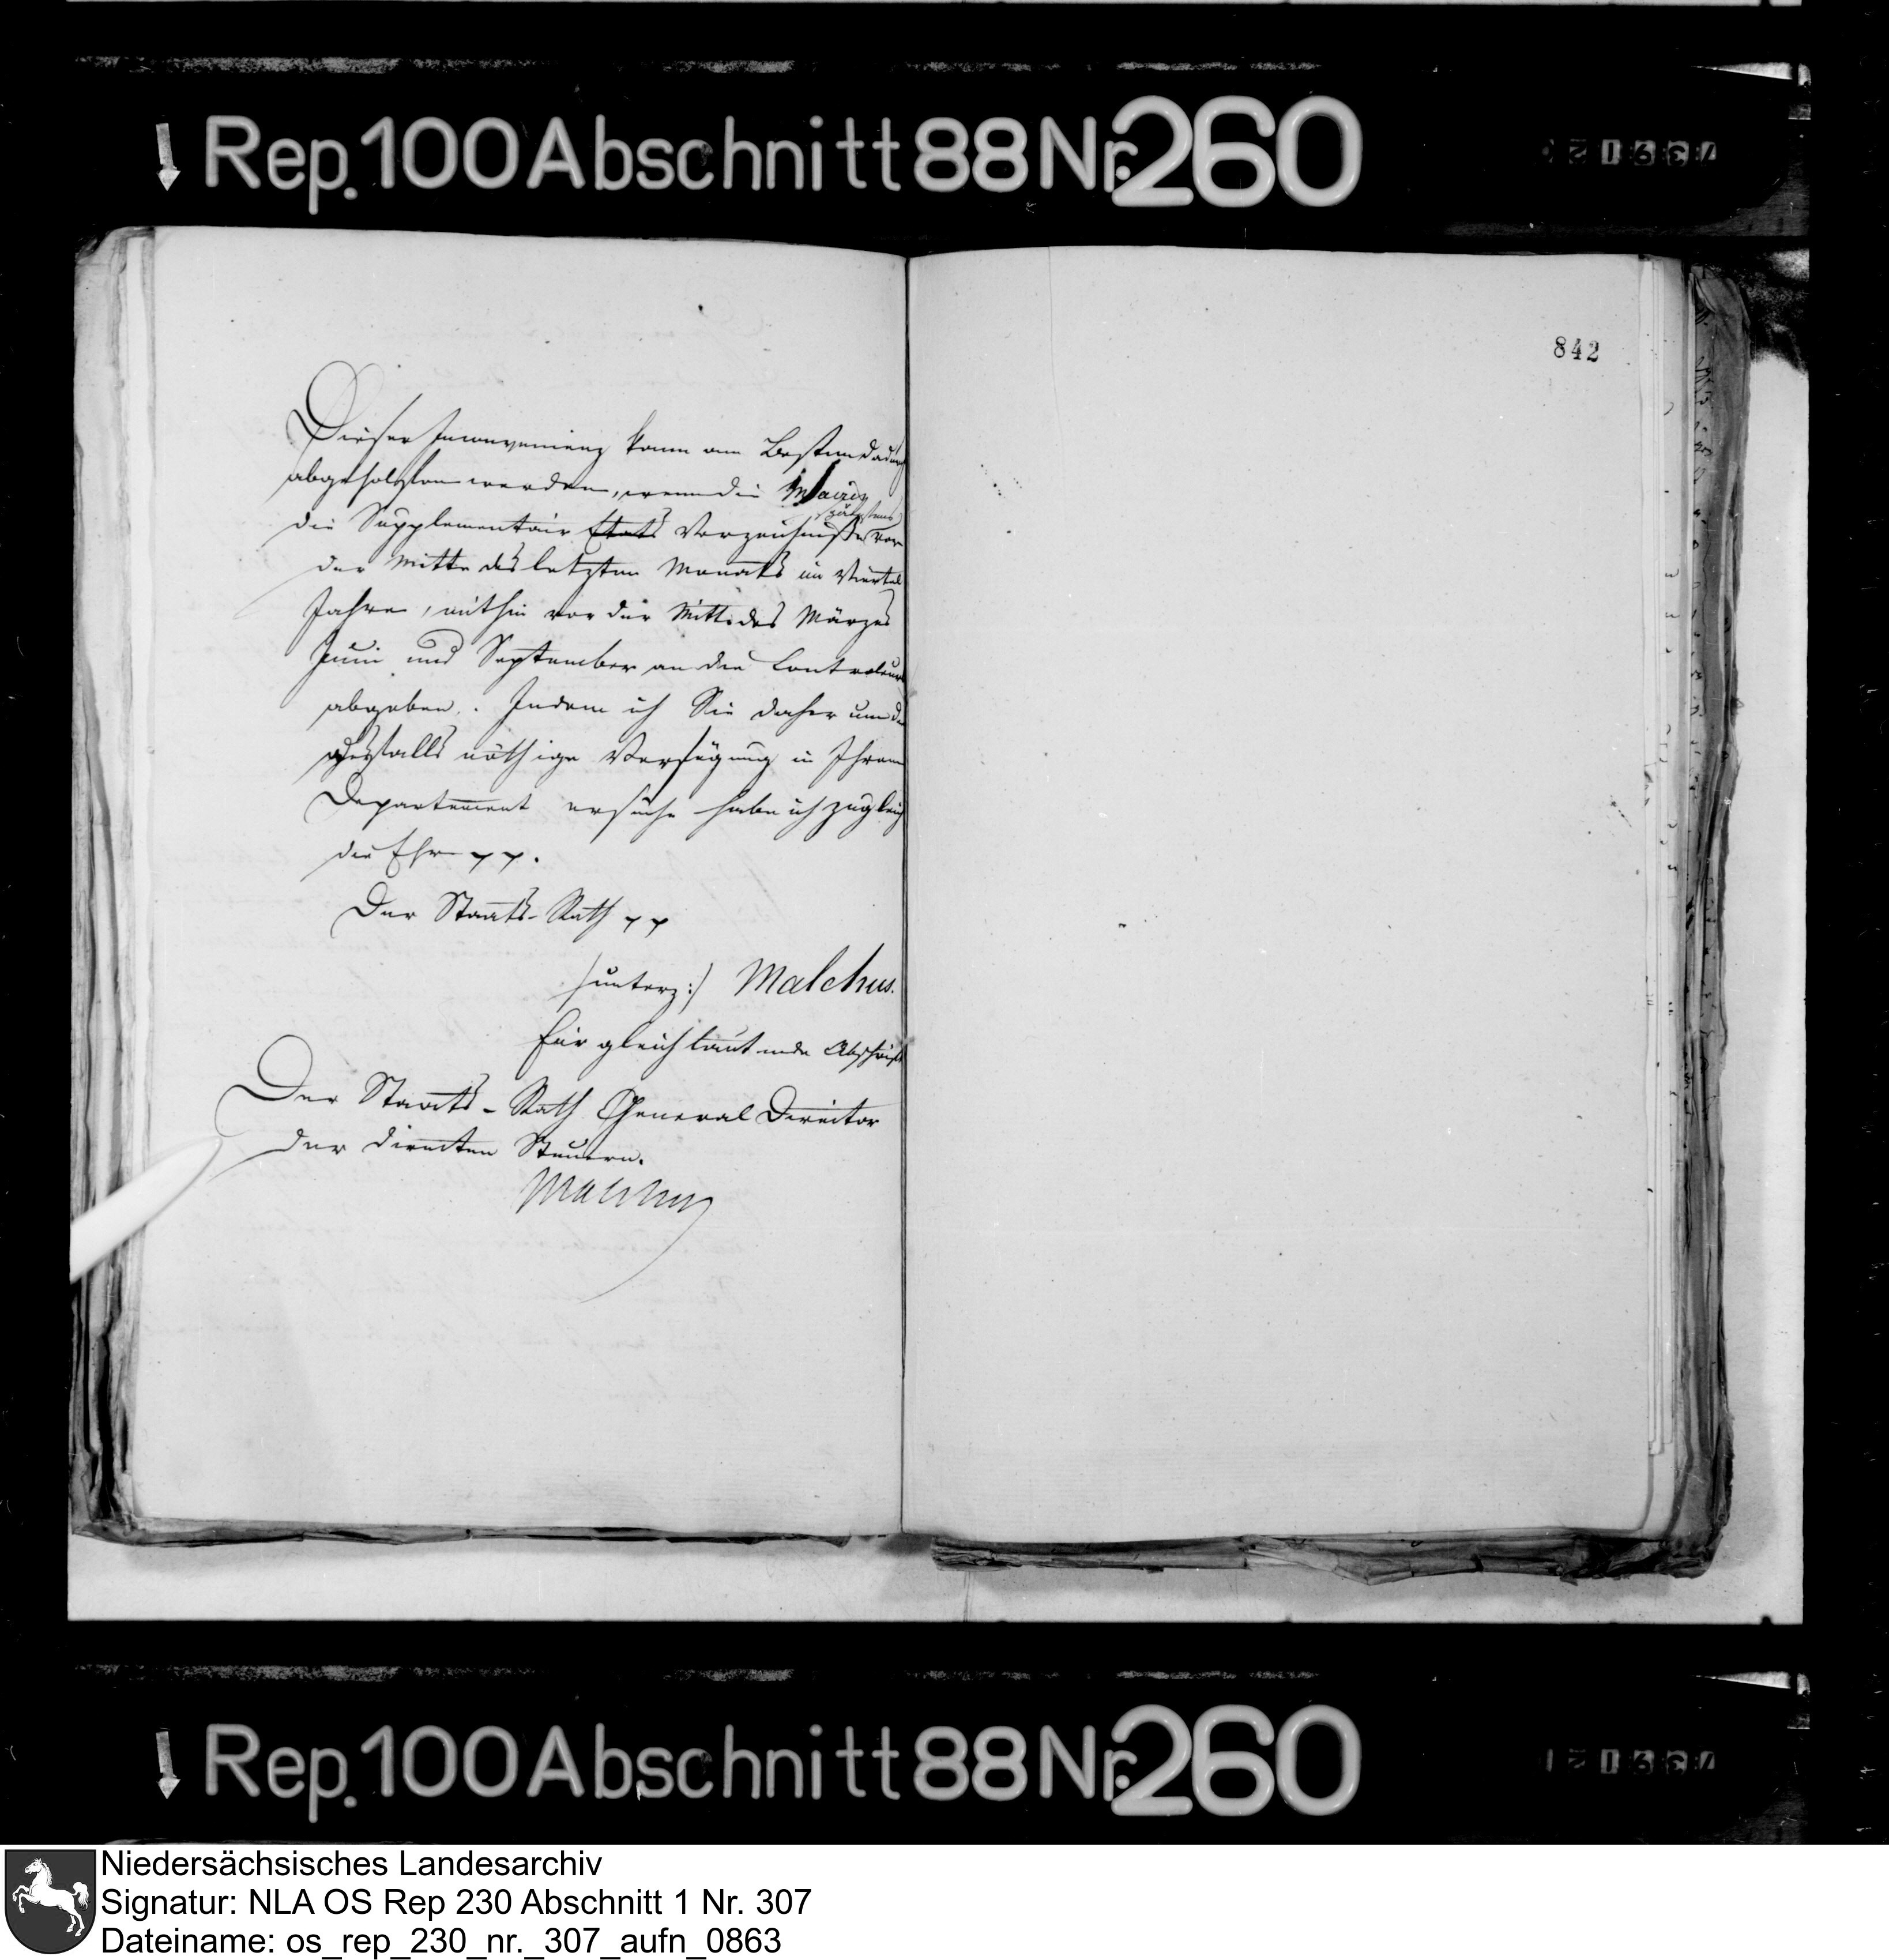 Rep. 100 Abschnitt 88 Nr. 260
842
Dieser Inconvenienz kann am Besten dadurch
abgeholfen werden, wenn die Mairies
die Supplementair Etats Verzeichniße spätestens vor
der Mitte des letzten Monats im Viertel
Jahre, mithin vor der Mitte des Märzes
Juni und September an die Controleurs
abgeben. Indem ich Sie daher um die
desfalls nöthige Verfügung in Ihrem
Departement ersuche habe ich zugleich
die Ehre pp.
Der Staats-Rath pp
(unterz:) Malchus.
Für gleichlautende Abschrift
Der Staats-Rath General Director
der directen Steuern.
Malchus
Rep. 100 Abschnitt 88 Nr. 260
Niedersächsisches Landesarchiv
Signatur: NLA OS Rep 230 Abschnitt 1 Nr. 307
Dateiname: os_rep_230_nr._307_aufn_0863